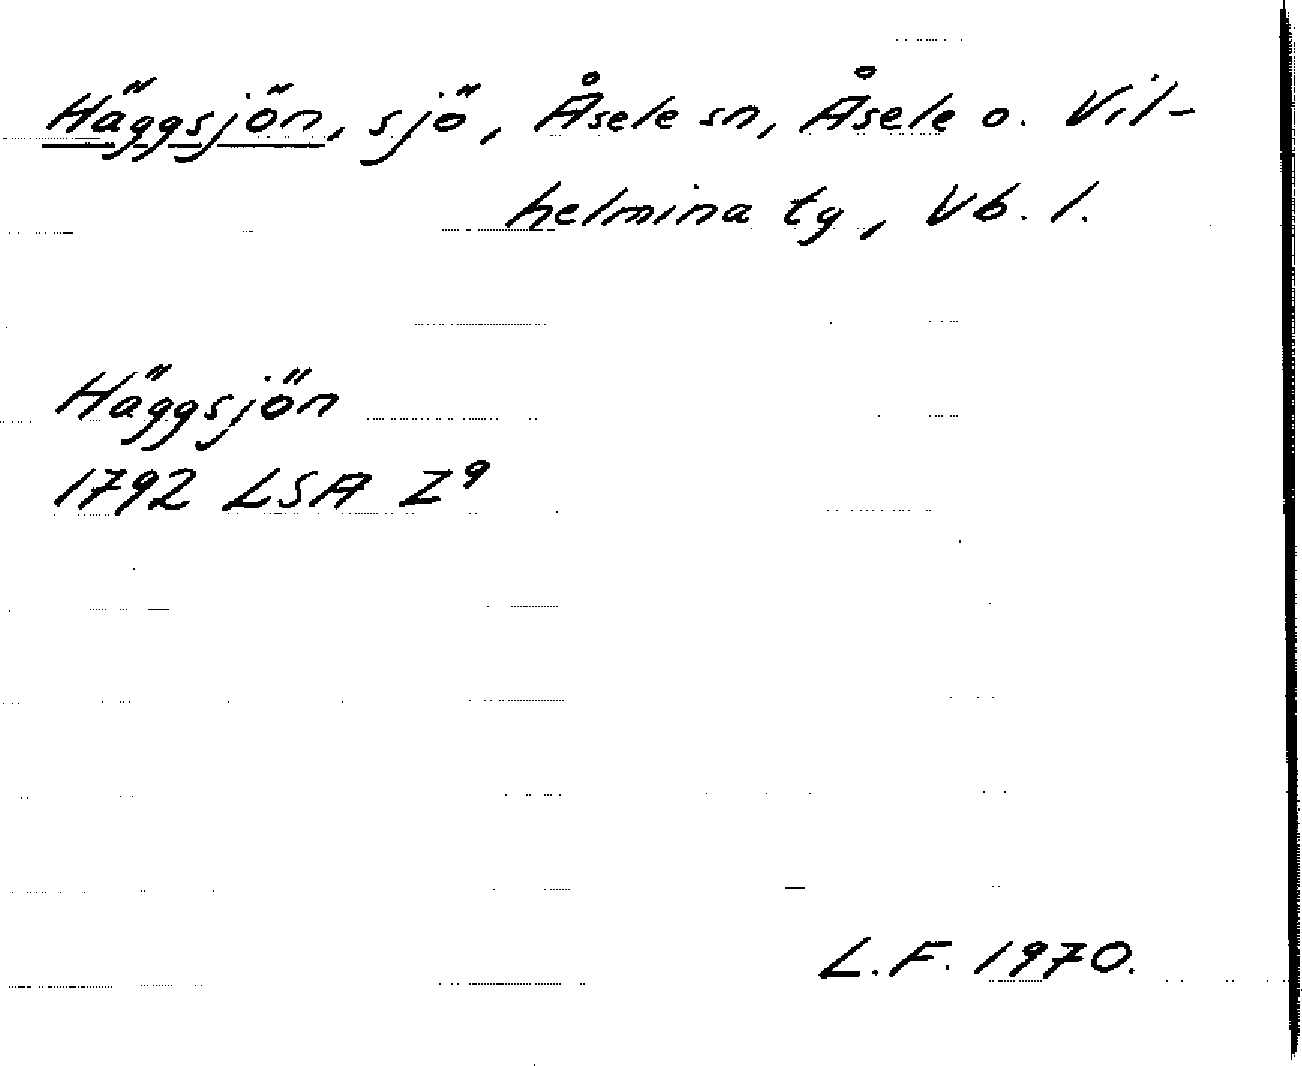 Häggsjön, sjö, Åsele sn, Åsele o. Vil-
helmina tg, Vb. l.
Häggsjön
1792 LSA Z⁹
L.F. 1970.